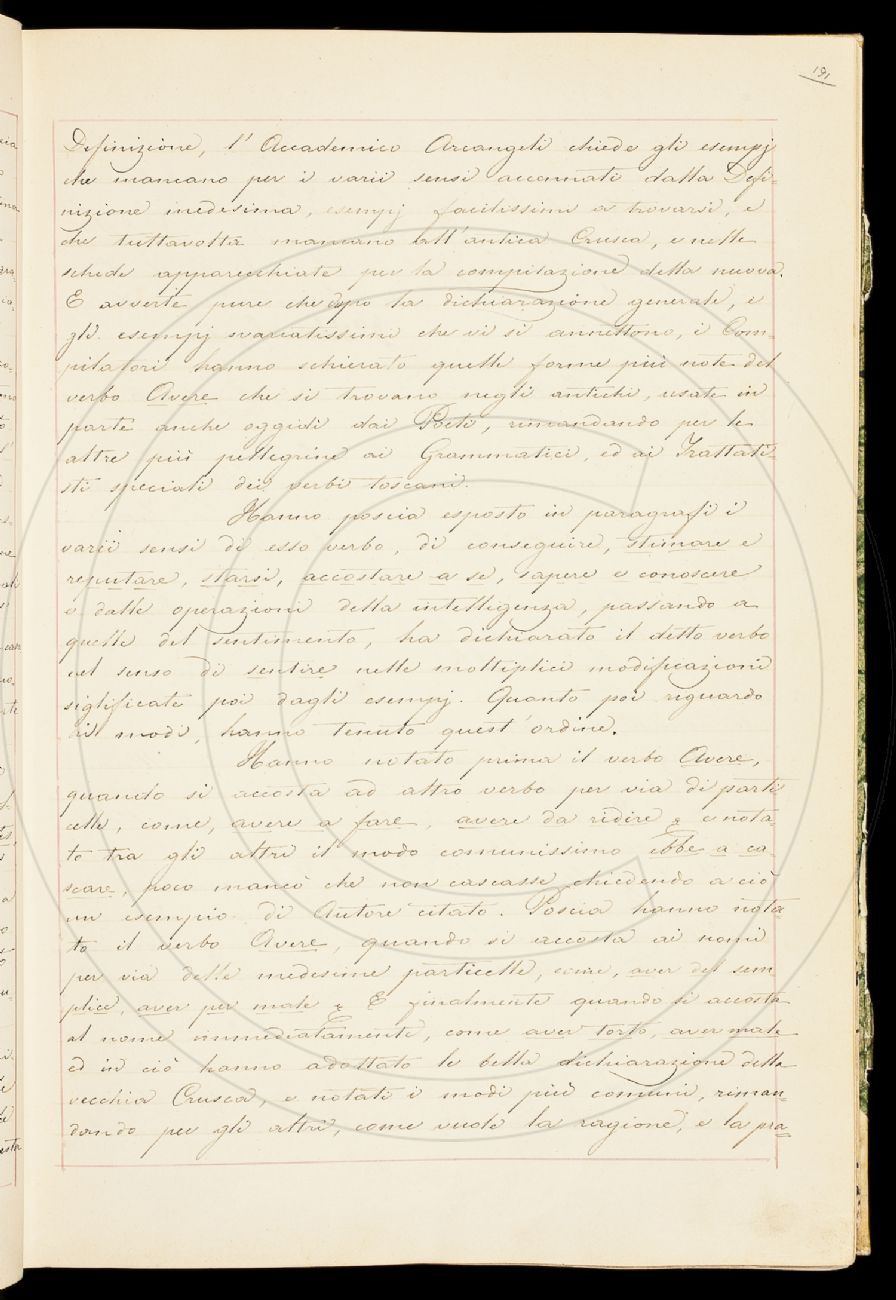 191
Definizione, l'Accademico Arcangeli chiede gli esempj
che mancano per i varii sensi accennati dalla Defi-
nizione medesima, esempj facilissimi a trovarsi, e
che tuttavolta mancano all'antica Crusca, e nelle
schede apparecchiate per la compilazione della nuova.
E avverte pure che dopo la dichiarazione generale, e
gli esempj svariatissimi che vi si annettono, i Com-
pilatori hanno schierato quelle forme più note del
verbo Avere che si trovano negli antichi, usate in
parte anche oggidì dai Poeti, rimandando per le
altre più pellegrine ai Grammatici, ed ai Trattati-
sti speciali dei verbi toscani.
Hanno poscia esposto in paragrafi i
varii sensi di esso verbo, di conseguire, stimare e
reputare, starsi, accostare a se, sapere e conoscere
e dalle operazioni della intelligenza, passando a
quelle del sentimento, ha dichiarato il detto verbo
nel senso di sentire nelle moltiplici modificazioni
siglificate poi dagli esempj. Quanto poi reguardo
ai modi, hanno tenuto quest'ordine.
Hanno notato prima il verbo Avere,
quando si accosta ad altro verbo per via di parti
celle, come, avere a fare, avere da ridire & e nota-
to tra gli altri il modo comunissimo ebbe a ca-
scare, poco mancò che non cascasse, chiedendo a ciò
un esempio di Autore citato. Poscia hanno nota-
to il verbo Avere, quando si accosta ai nomi
per via delle medesime particelle, come, aver del sem
plice, aver per male & E finalmente quando si accosta
al nome immediatamente, come aver torto, aver male
ed in ciò hanno adottato le bella dichiarazione della
vecchia Crusca, e notati i modi più comuni, riman-
dando per gli altri, come vuole la ragione, e la pra-